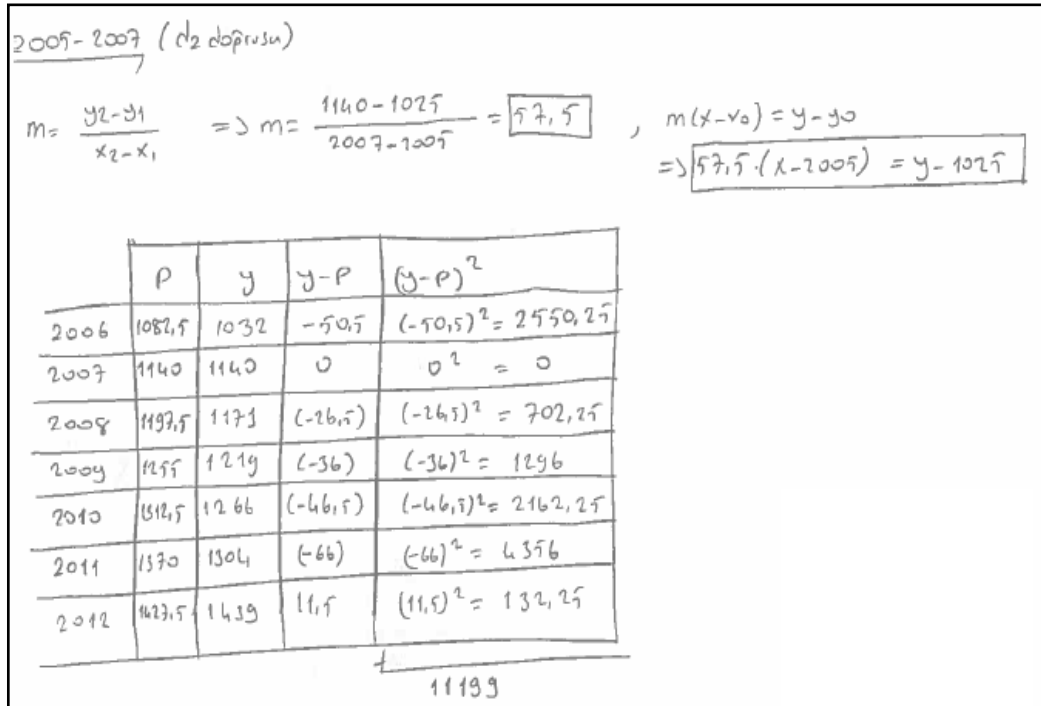 2005-2007 (d2 doğrusu)
m= y2-y1 / x2-x1 => m= 1140-1025 / 2007-2005 = 57,5 , m(x-x0) = y-y0
=> 57,5.(x-2005) = y-1025
P y y-P (y-P)²
2006 1082,5 1032 -50,5 (-50,5)² = 2550,25
2007 1140 1140 0 0² = 0
2008 1197,5 1171 (-26,5) (-26,5)² = 702,25
2009 1255 1219 (-36) (-36)² = 1296
2010 1312,5 1266 (-46,5) (-46,5)² = 2162,25
2011 1370 1304 (-66) (-66)² = 4356
2012 1427,5 1439 11,5 (11,5)² = 132,25
11199